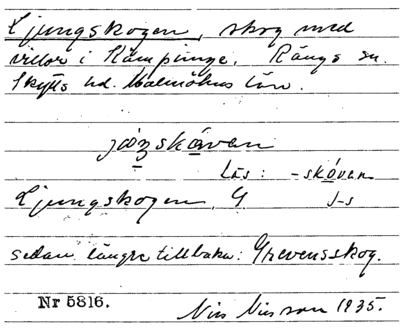 Ljungskogen, skog med
villor i Kämpinge. Rängs sn.
Skytts hd. Malmöhus län.
Läs: -skóven
Ljungskogen, G J-s
sedan längre tillbaka: Grevensskog.
Nr 5816. Nils Nilsson 1935.